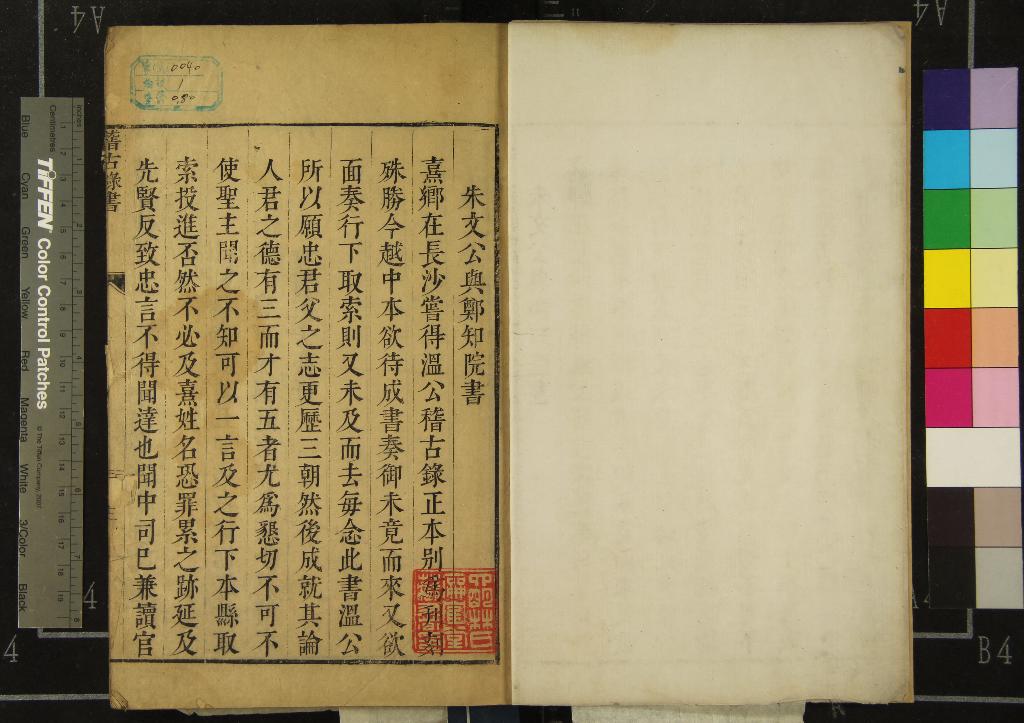 朱文公與鄭知院書
熹鄉在長沙嘗得溫公稽古錄正本别爲刊刻
殊勝今越中本欲待成書奏御未竟而來又欲
面奏行下取索則又未及而去每念此書溫公
所以願忠君父之志更歷三朝然後成就其論
人君之德有三而才有五者尤爲懇切不可不
使聖主聞之不知可以一言及之行下本縣取
索投進否然不必及熹姓名恐罪累之跡延及
先賢反致忠言不得聞達也聞中司已兼讀官
稽古錄書
0040
1
080
inches
Centimetres
TIFFEN Color Control Patches
© The Tiffen Company, 2007
Blue
Cyan
Green
Yellow
Red
Magenta
White
3/Color
Black
A4
A4
4
4
B4